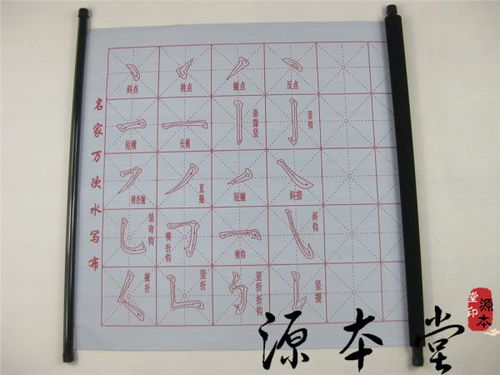 名家万次水写布
斜点 挑点 撇点 反点
短横 长横 垂露竖 竖钩
横折撇 直撇 短撇 斜捺
竖弯钩 横折钩 横钩 斜钩
撇折 竖折 竖折折钩 竖提
源本堂
源本
堂印